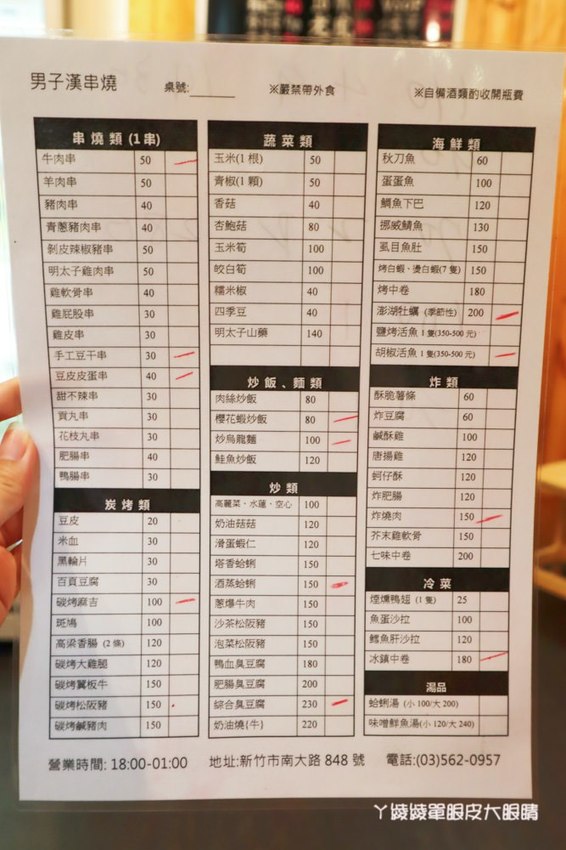 男子漢串燒 桌號:______ ※嚴禁帶外食 ※自備酒類酌收開瓶費
串燒類 (1串)
牛肉串 50
羊肉串 50
豬肉串 40
青蔥豬肉串 40
剝皮辣椒豬串 50
明太子雞肉串 50
雞軟骨串 40
雞屁股串 30
雞皮串 30
手工豆干串 30
豆皮皮蛋串 40
甜不辣串 30
貢丸串 30
花枝丸串 30
肥腸串 40
鴨腸串 30
炭烤類
豆皮 20
米血 30
黑輪片 30
百頁豆腐 30
碳烤麻吉 100
斑鳩 100
高梁香腸 (2條) 120
碳烤大雞腿 120
碳烤翼板牛 150
碳烤松阪豬 150
碳烤鹹豬肉 150
蔬菜類
玉米(1根) 50
青椒(1顆) 50
香菇 40
杏鮑菇 80
玉米筍 100
皎白筍 100
糯米椒 40
四季豆 40
明太子山藥 140
炒飯、麵類
肉絲炒飯 80
櫻花蝦炒飯 80
炒烏龍麵 100
鮭魚炒飯 120
炒類
高麗菜、水蓮、空心 100
奶油菇菇 120
滑蛋蝦仁 120
塔香蛤蜊 150
酒蒸蛤蜊 150
蔥爆牛肉 150
沙茶松阪豬 150
泡菜松阪豬 150
鴨血臭豆腐 180
肥腸臭豆腐 200
綜合臭豆腐 230
奶油燒{牛} 220
海鮮類
秋刀魚 60
蛋蛋魚 100
鯛魚下巴 120
挪威鯖魚 130
虱目魚肚 150
烤白蝦、燙白蝦(7隻) 150
烤中卷 180
澎湖牡蠣 (季節性) 200
鹽烤活魚 1隻(350-500元)
胡椒活魚 1隻(350-500元)
炸類
酥脆薯條 60
炸豆腐 60
鹹酥雞 100
唐揚雞 120
蚵仔酥 120
炸肥腸 120
炸燒肉 150
芥末雞軟骨 150
七味中卷 200
冷菜
煙燻鴨翅 (1隻) 25
魚蛋沙拉 100
鱈魚肝沙拉 120
冰鎮中卷 180
湯品
蛤蜊湯 (小100/大200)
味噌鮮魚湯(小120/大240)
營業時間: 18:00-01:00 地址:新竹市南大路 848 號 電話:(03)562-0957
ㄚ綾綾單眼皮大眼睛